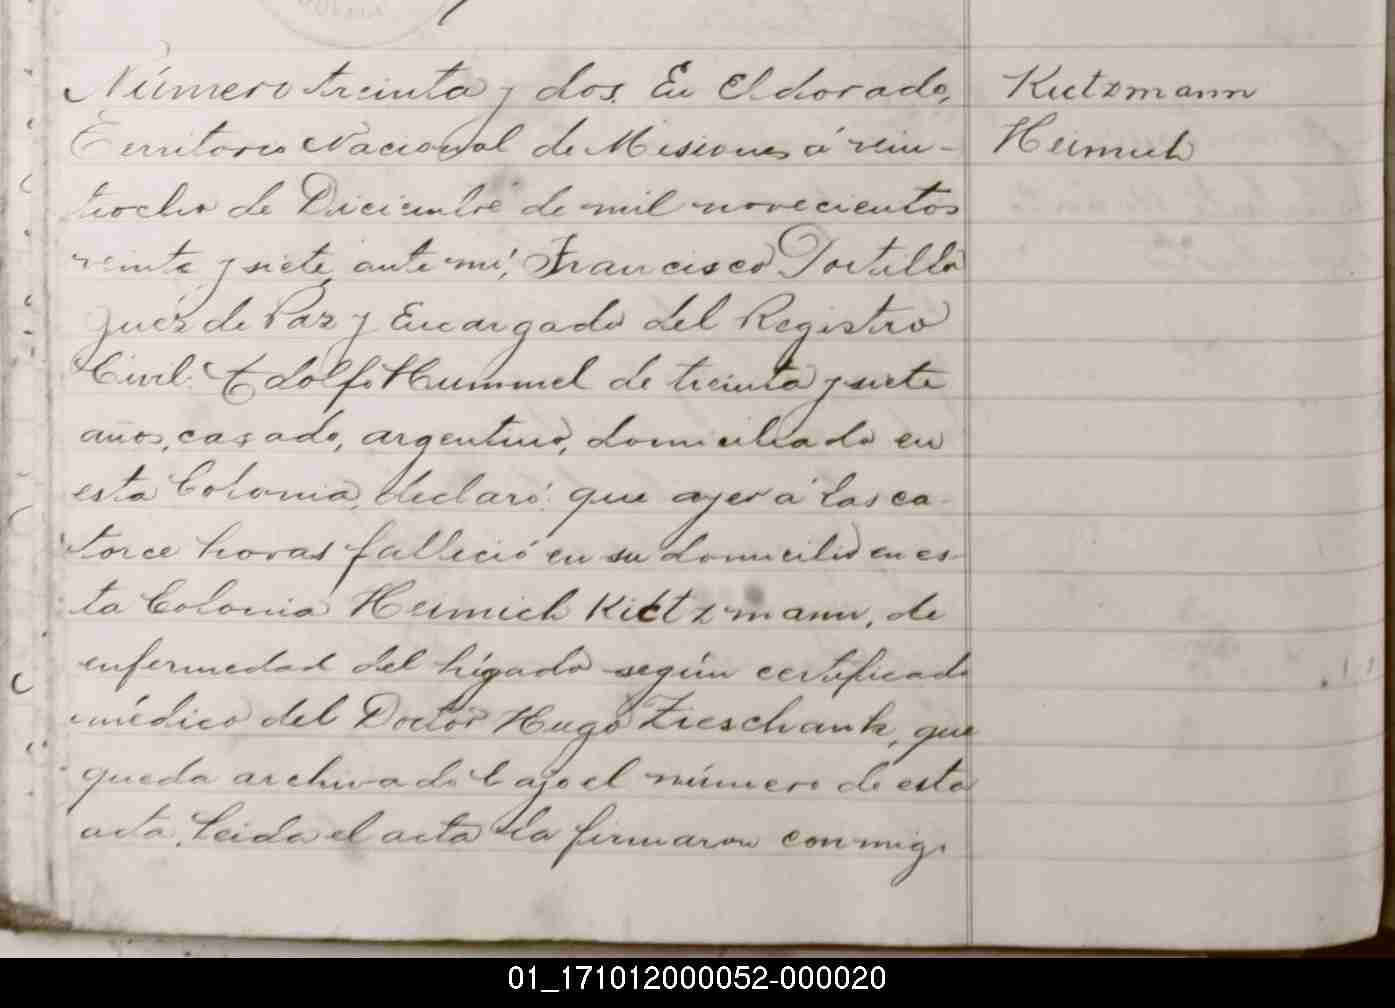 Número treinta y dos. En Eldorado,
Territorio Nacional de Misiones á vein-
tiocho de Diciembre de mil novecientos
veinte y siete, ante mi, Francisco Portillo
Juez de Paz y Encargado del Registro
Civil. Adolfo Hummel de treinta y siete
años, casado, argentino, domiciliado en
esta Colonia, declaró: que ayer á las ca-
torce horas falleció en su domicilio en es-
ta Colonia Heinrich Kietzmann, de
enfermedad del hígado según certificado
médico del Doctor Hugo Zieschank, que
queda archivado bajo el número de esta
acta. Leida el acta la firmaron conmigo
Kietzmann
Heinrich
01_171012000052-000020